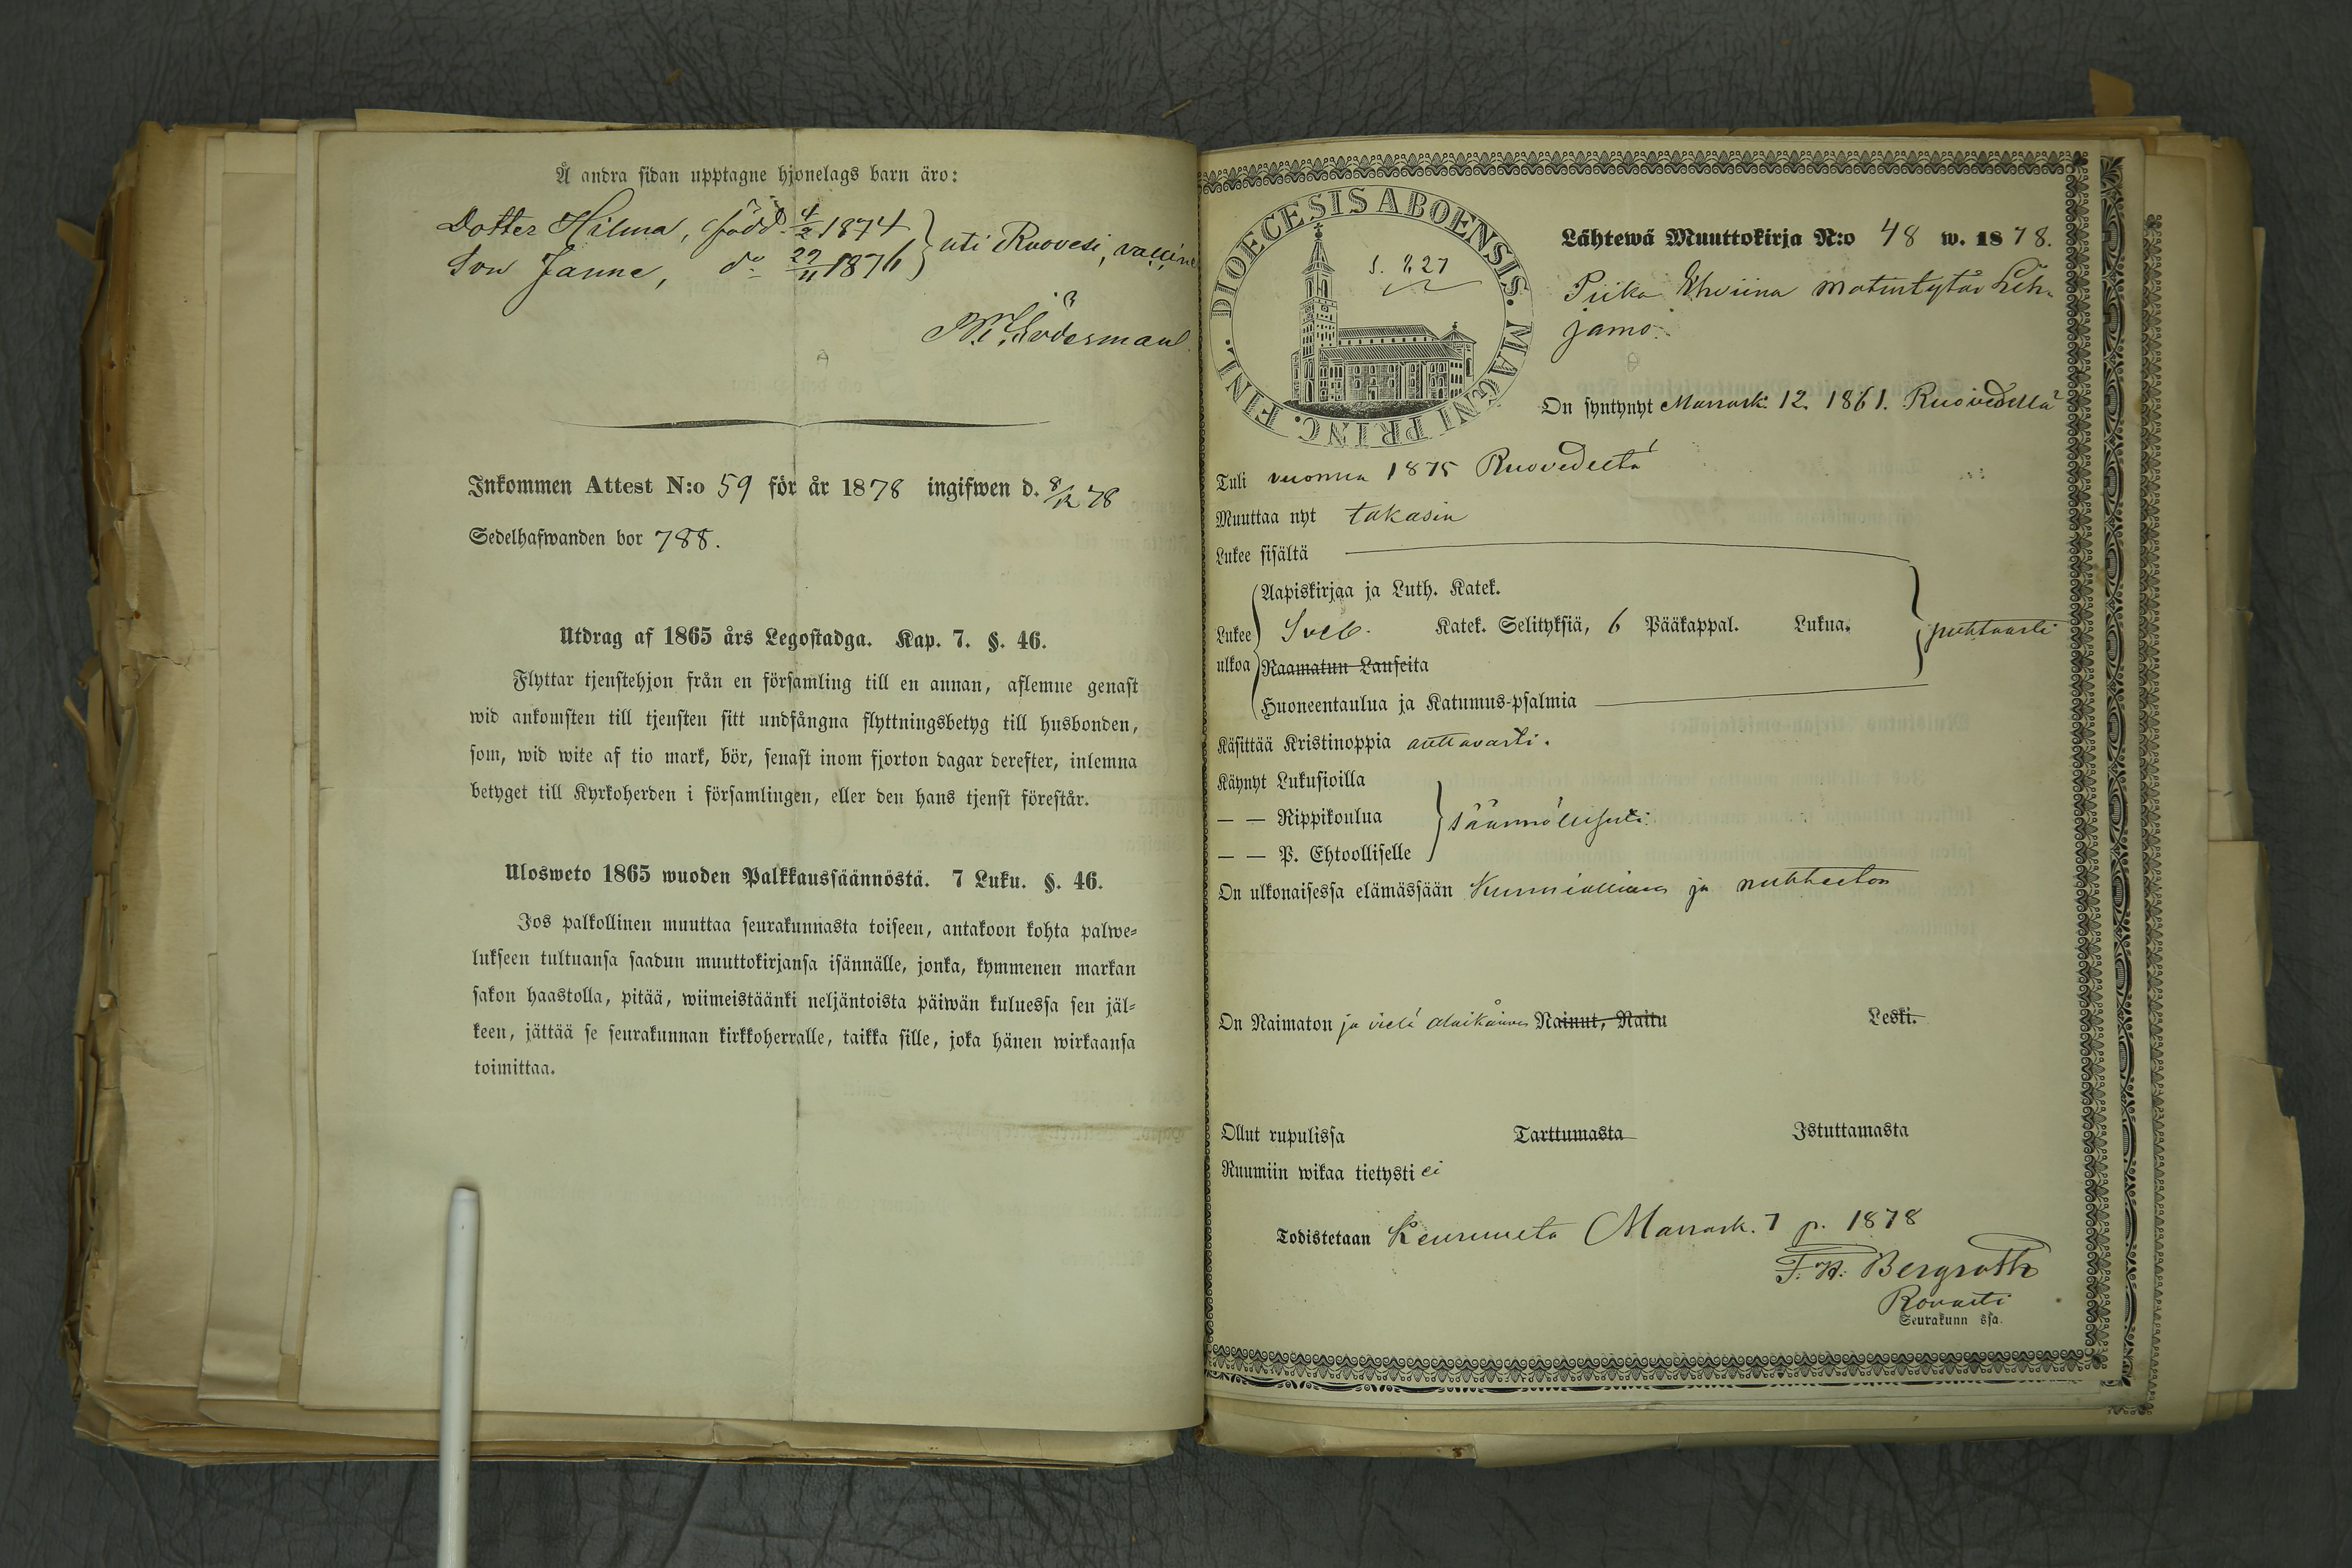 Å andra sidan upptagne hjonelags barn äro:
Dotter Hilma, född 4/2 1874
Son Janne, do 29/11 1876
} uti Ruovesi, vaccine
Södermanl
Inkommen Attest N:o 59 för år 1878 ingifwen d. 8/12 78
Sedelhafwanden bor 788.
Utdrag af 1865 års Legostadga. Kap. 7. §. 46.
Flyttar tjenstehjon från en församling till en annan, aflemne genast
wid ankomsten till tjensten sitt undfångna flyttningsbetyg till husbonden,
som, wid wite af tio mark, bör, senast inom fjorton dagar derefter, inlemna
betyget till Kyrkoherden i församlingen, eller den hans tjenst förestår.
Ulosweto 1865 wuoden Palkkaussäännöstä. 7 Luku. §. 46.
Jos palkollinen muuttaa seurakunnasta toiseen, antakoon kohta palwe=
lukseen tultuansa saadun muuttokirjansa isännälle, jonka, kymmenen markan
sakon haastolla, pitää, wiimeistäänki neljäntoista päiwän kuluessa sen jäl=
keen, jättää se seurakunnan kirkkoherralle, taikka sille, joka hänen wirkaansa
toimittaa.
DIOECESIS ABOENSIS. MAGNI PRINC. FINL.
S. 227
Lähtewä Muuttokirja N:o 48 w. 1878.
Piika Elviina Matintytär Leh-
jamo.
On syntynyt Marrask: 12. 1861. Ruovedellä
Tuli vuonna 1875 Ruovedeltä
Muuttaa nyt takasin
Lukee sisältä
Lukee ulkoa
Aapiskirjaa ja Luth. Katek.
Sveb. Katek. Selityksiä, 6 Pääkappal. Lukua. puhtaasti
Raamatun Lauseita
Huoneentaulua ja Katumus-psalmia
Käsittää Kristinoppia auttavasti.
Käynyt Lukusioilla
— — Rippikoulua säännöllisesti
— — P. Ehtoolliselle
On ulkonaisessa elämässään kunniallinen ja nuhteeton
On Naimaton ja vielä alaikäinen Nainut, Naitu Leski.
Ollut rupulissa Tarttumasta Istuttamasta
Ruumiin wikaa tietysti ei
Todistetaan Keuruulta Marrask. 7 p. 1878
F. H. Bergroth
Rovasti
Seurakunn ssa.